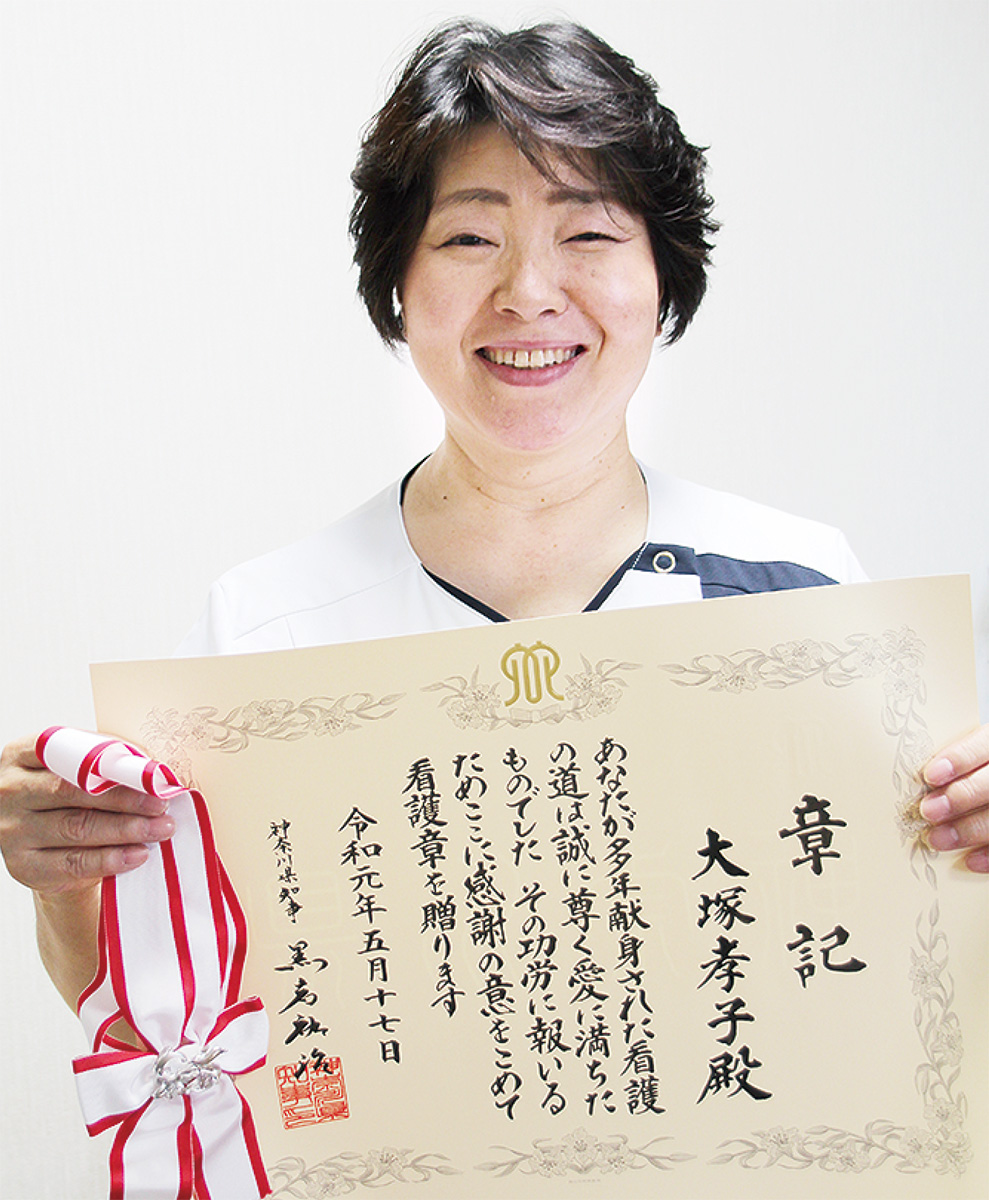 章記
大塚孝子殿
あなたが多年献身された看護
の道は誠に尊く愛に満ちた
ものでした その功労に報いる
ためここに感謝の意をこめて
看護章を贈ります
令和元年五月十七日
神奈川県知事 黒岩祐治